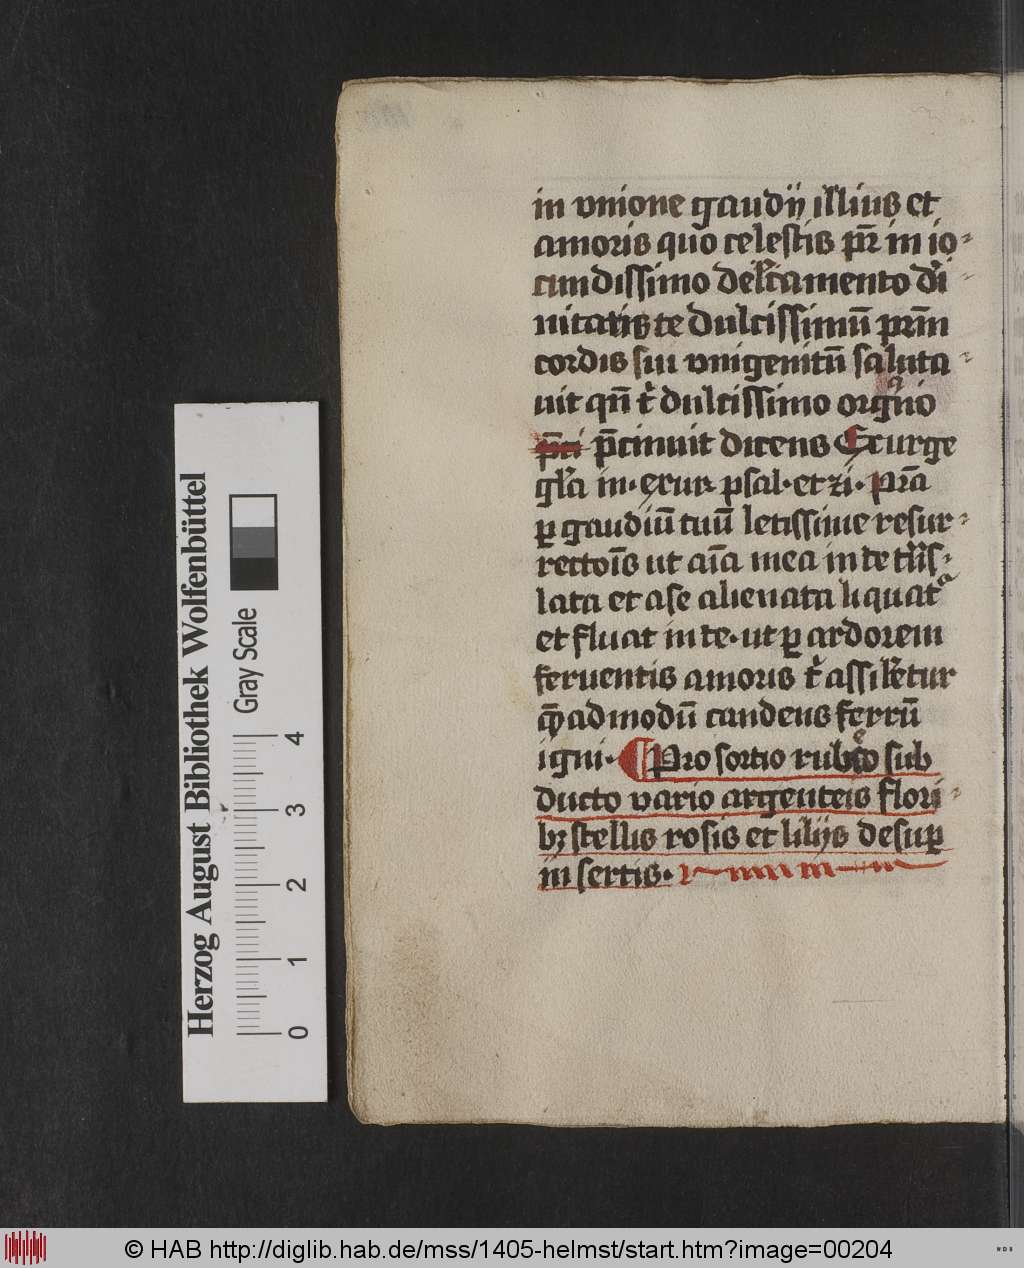 in vnione gaudij illius et
amoris quo celestis pr̄ in io-
cundissimo delcamento di-
nitatis te dulcissimū prim̄
cordis sui vnigenitū saluta-
uit qn̄ t dulcissimo orgno
p̄ci p̄cinuit dicens Exurge
gla in. exur psal. et zi. pr̄a
p gaudiū tuū letissime resur-
rectōis ut aīa mea in te tns-
lata et a se alienata liquat
et fluat in te. ut p ardorem
feruentis amoris t assiletur
qādmodū candens ferrū
igni. Pro sortio rubeo sub
ducto vario argenteis flori-
bꝫ stellis rosis et lilijs desup
in sertis.
Herzog August Bibliothek Wolfenbüttel
Gray Scale
0 1 2 3 4
© HAB http://diglib.hab.de/mss/1405-helmst/start.htm?image=00204